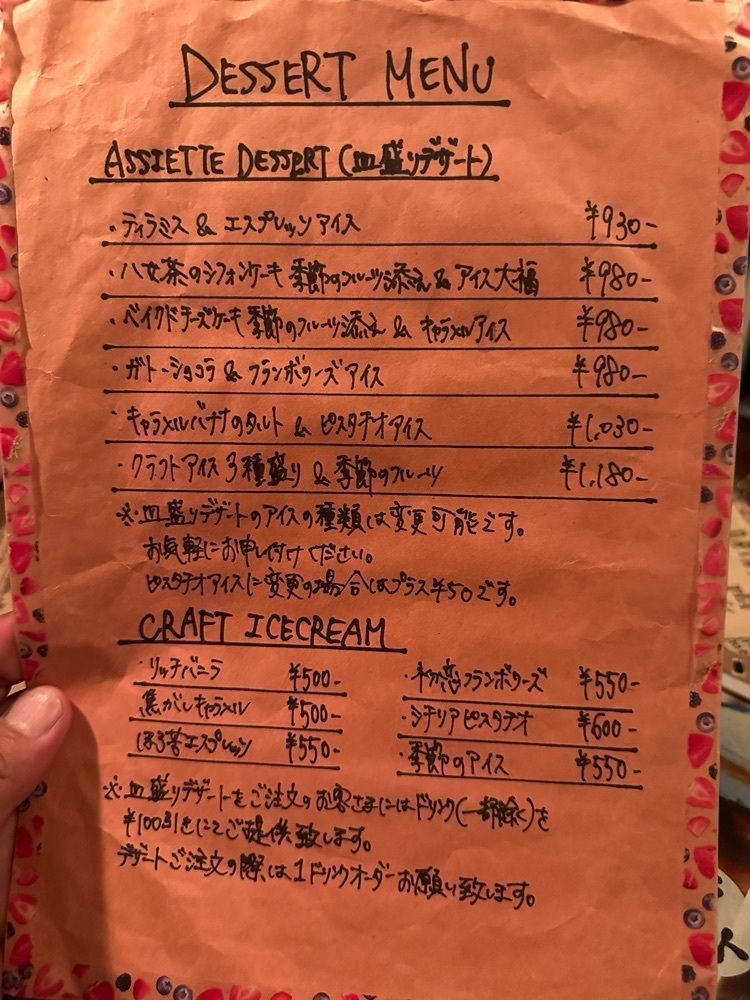 DESSERT MENU
ASSIETTE DESSERT (皿盛りデザート)
・ティラミス & エスプレッソアイス ¥930-
・八女茶のシフォンケーキ 季節のフルーツ添え & アイス大福 ¥980-
・ベイクドチーズケーキ 季節のフルーツ添え & キャラメルアイス ¥980-
・ガトーショコラ & フランボワーズアイス ¥980-
・キャラメルバナナのタルト & ピスタチオアイス ¥1,030-
・クラフトアイス3種盛り & 季節のフルーツ ¥1,180-
※皿盛りデザートのアイスの種類は変更可能です。
お気軽にお申し付けください。
ピスタチオアイスに変更の場合はプラス¥50です。
CRAFT ICECREAM
・リッチバニラ ¥500-
焦がしキャラメル ¥500-
ほろ苦エスプレッソ ¥550-
・初恋フランボワーズ ¥550-
・シチリアピスタチオ ¥600-
・季節のアイス ¥550-
※皿盛りデザートをご注文のお客さまにはドリンク(一部除く)を
¥100引きにてご提供致します。
デザートご注文の際は1ドリンクオーダーお願い致します。